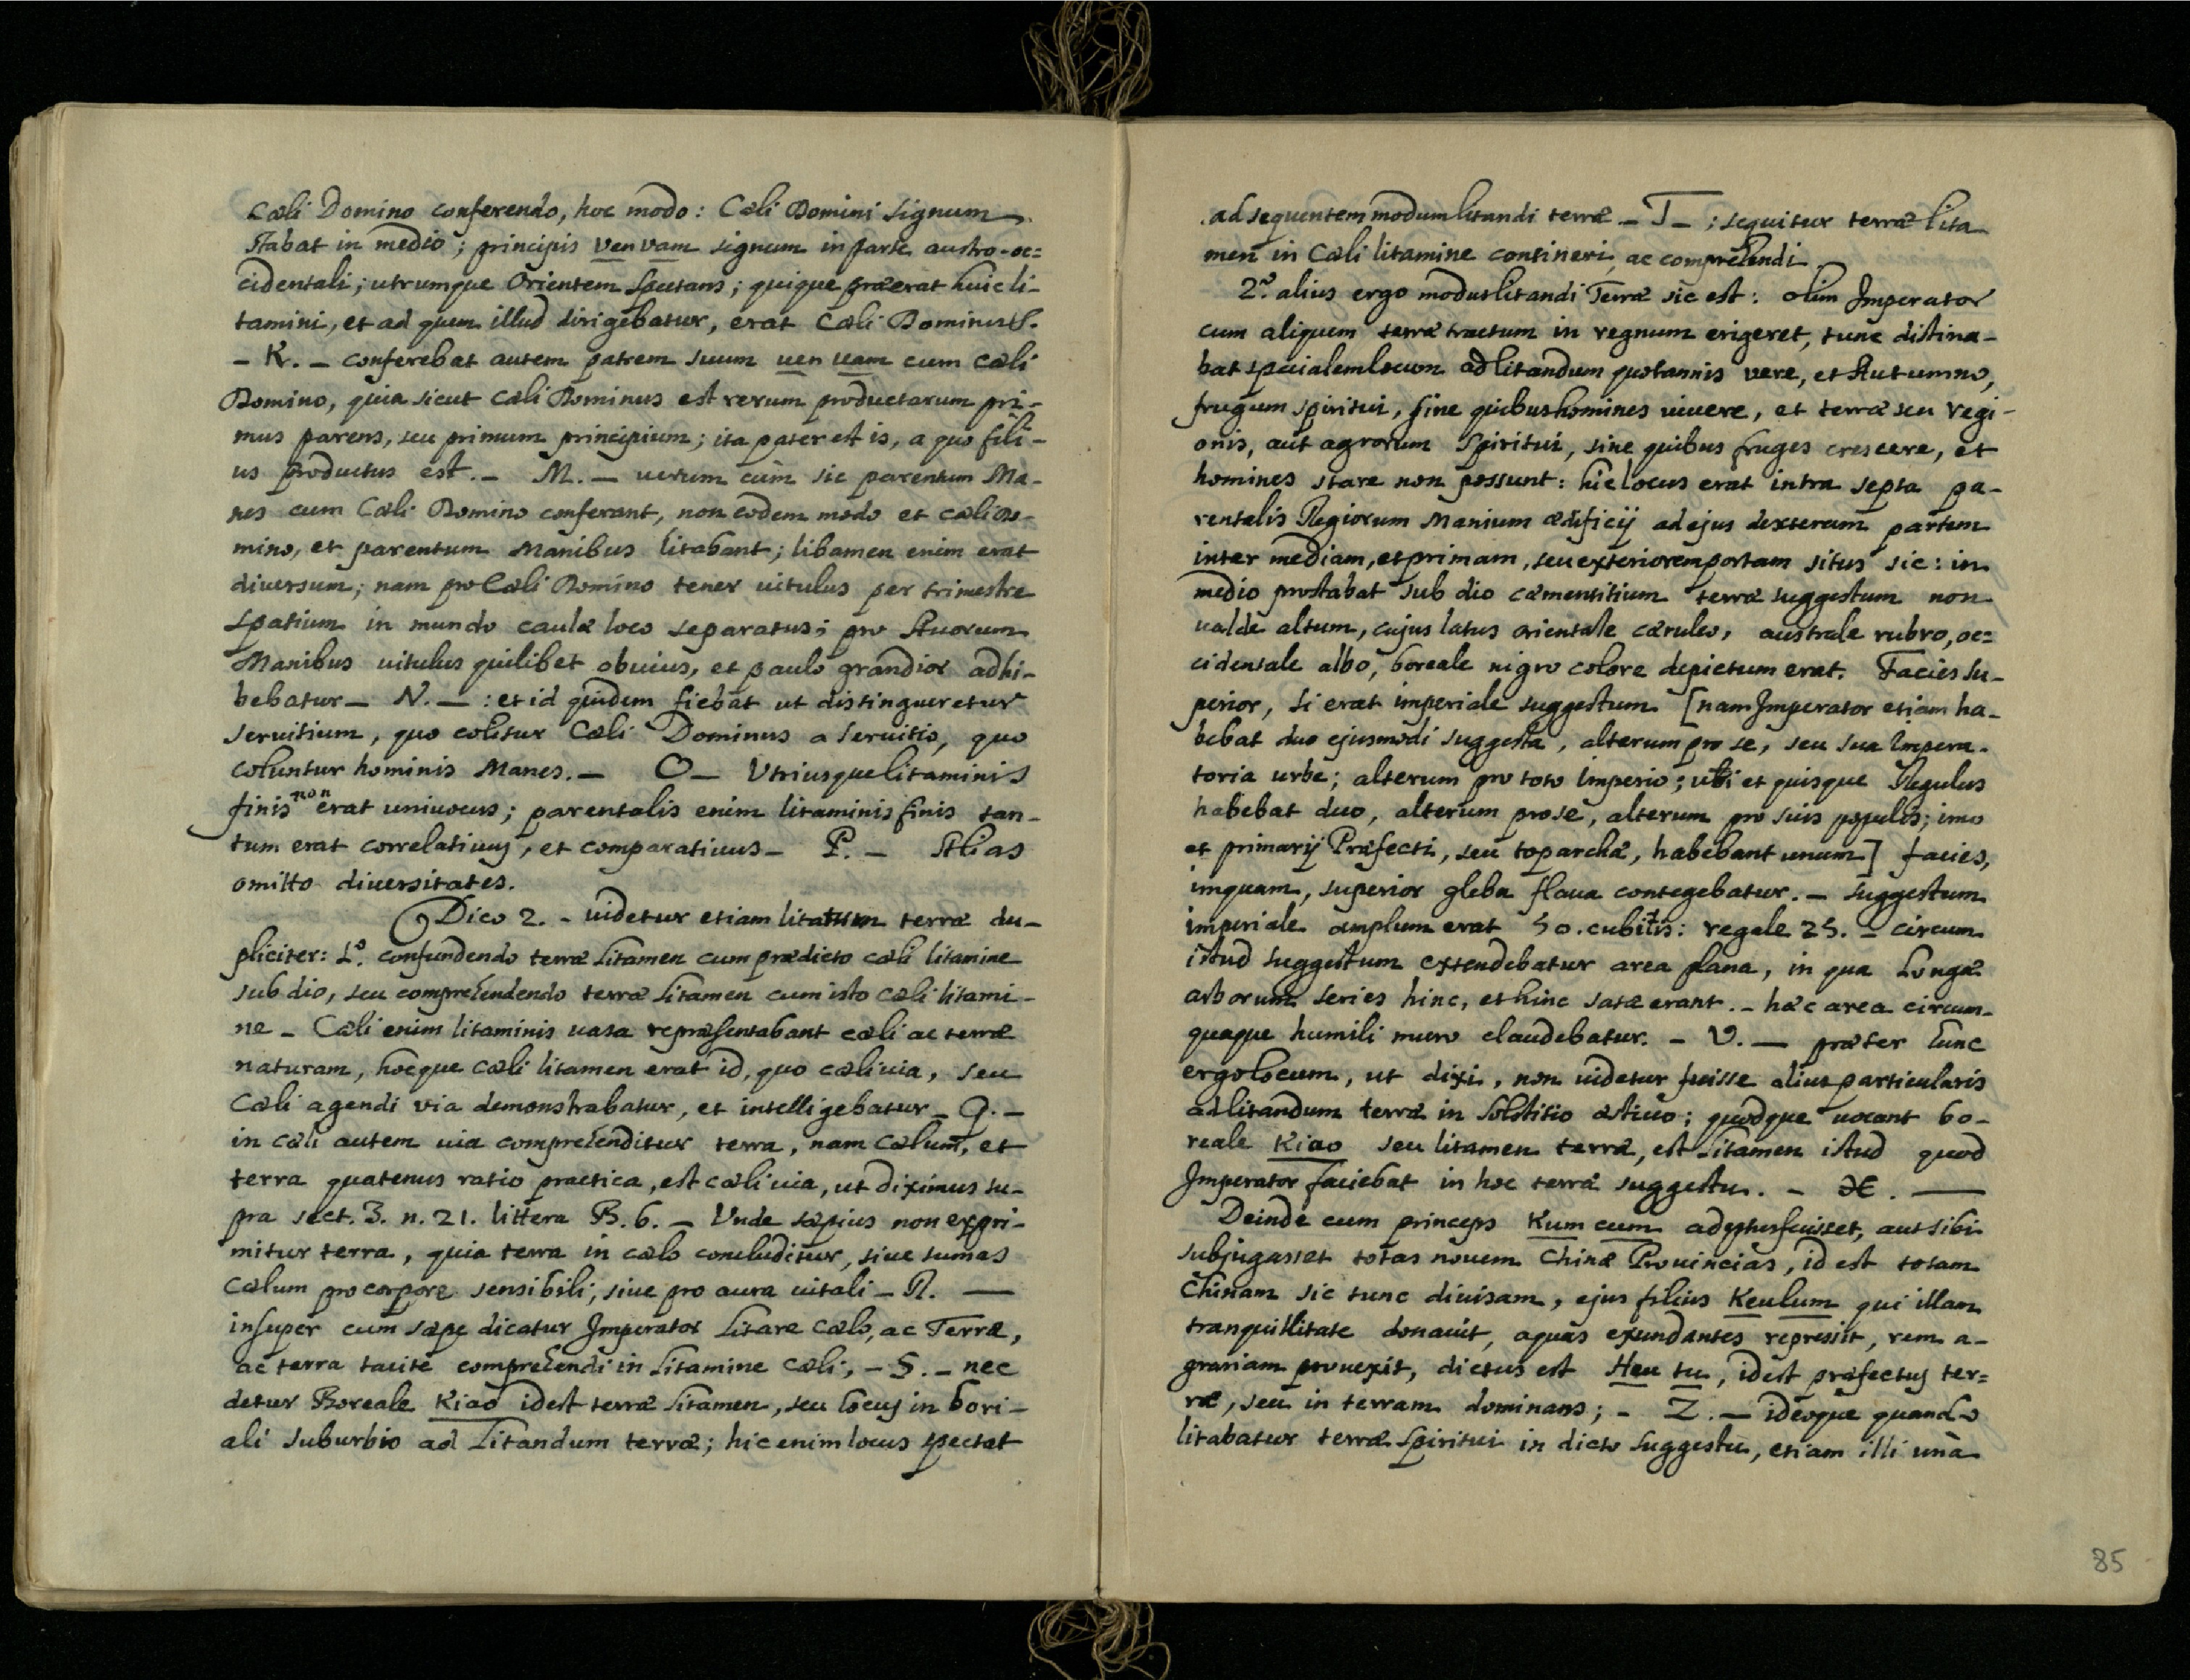 Cæli Domino conferendo, hoc modo: Cæli Domini signum
stabat in medio; principis ven vam signum in parte austro-oc=
cidentali; utrumque Orientem spectans; quique præerat huic li-
tamini, et ad quem illud dirigebatur, erat Cæli Dominus.
- K. - conferebat autem patrem suum uen uam cum cæli
Domino, quia sicut cæli Dominus est rerum productarum pri-
mus parens, seu primum principium; ita pater est is, a quo fili-
us productus est. - M. - uerum cùm sic parentum Ma-
nes cum Cæli Domino conferant, non eodem modo et cæli Do-
mino, et parentum Manibus litabant; libamen enim erat
diversum; nam pro Cæli Domino tener uitulus per trimestre
spatium in mundo caulæ loco separatus; pro Auorum
Manibus uitulus quilibet obuius, et paulo grandior adhi-
bebatur - N. - : et id quidem fiebat ut distingueretur
seruitium, quo colitur Cæli Dominus a seruitio, quo
coluntur hominis Manes. - O - Vtriusque litaminis
finis non erat uniuocus; parentalis enim litaminis finis tan-
tum erat correlatiuus, et comparatiuus - P. - Alias
omitto diuersitates.
Dico 2. - uidetur etiam litatum terræ du-
pliciter: 1º. confundendo terræ litamen cum prædicto cæli litamine
sub dio, seu comprehendendo terræ litamen cum isto cæli litami-
ne - Cæli enim litaminis uasa repræsentabant cæli ac terræ
naturam, hocque cæli litamen erat id, quo cæli uia, seu
Cæli agendi via demonstrabatur, et intelligebatur - Q. -
in cæli autem uia comprehenditur terra, nam Cælum, et
terra quatenus ratio practica, est cæli uia, ut diximus su-
pra sect. 3. n. 21. littera B. 6. - Vnde sæpius non expri-
mitur terra, quia terra in cælo concluditur, siue sumas
Cælum pro corpore sensibili, siue pro aura uitali - R. -
insuper cum sæpe dicatur Imperator litare cælo, ac Terræ,
ac terra tacitè comprehendi in litamine cæli; - S. - nec
detur Boreale Kiao idest terræ litamen, seu locus in bori-
ali suburbio ad litandum terræ; hic enim locus spectat
ad sequentem modum litandi terræ - T - ; sequitur terræ lita
men in Cæli litamine contineri, ac comprehendi
2º. alius ergo modus litandi Terræ sic est: olim Imperator
cum aliquem terræ tractum in regnum erigeret, tunc distina-
bat specialem locum ad litandum quotannis vere, et Autumno,
frugum spiritui, sine quibus homines uiuere, et terræ seu regi-
onis, aut agrorum spiritui, sine quibus fruges crescere, et
homines stare non possunt: hic locus erat intra septa pa-
rentalis Regiorum Manium ædificij ad ejus dexteram partem
inter mediam, et primam, seu exteriorem portam situs sic: in
medio prostabat sub dio cæmentitium terræ suggestum non
ualde altum, cujus latus orientale cæruleo, australe rubro, oc=
cidentale albo, boreale nigro colore depictum erat. Facies su-
perior, si erat imperiale suggestum [nam Imperator etiam ha-
bebat duo ejusmodi suggesta, alterum pro se, seu sua Impera-
toria urbe; alterum pro toto Imperio; uti et quisque Regulus
habebat duo, alterum pro se, alterum pro suis populis; imo
et primarij Præfecti, seu toparchæ, habebant unum] facies,
inquam, superior gleba flaua contegebatur. - suggestum
imperiale amplum erat 50. cubitis: regale 25. - circum
istud suggestum extendebatur area plana, in qua longæ
arborum series hinc, et hinc satæ erant. - hæc area circum-
quaque humili muro claudebatur. - V. - præter hunc
ergo locum, ut dixi, non uidetur fuisse alius particularis
ad litandum terræ in solstitio æstiuo; quodque uocant bo-
reale Kiao seu litamen terræ, est litamen istud quod
Imperator faciebat in hoc terræ suggestu. - X. -
Deinde cum princeps Kum cum adeptus fuisset, aut sibi
subjugasset totas nouem Chinæ Prouincias, id est totam
Chinam sic tunc diuisam, ejus filius Keulum qui illam
tranquillitate donauit, aquas exundantes repressit, rem a-
grariam prouexit, dictus est Heu tu, idest præfectus ter=
ræ, seu in terram dominans; - Z. - ideoque quando
litabatur terræ spiritui in dicto suggestu, etiam illi unà
85